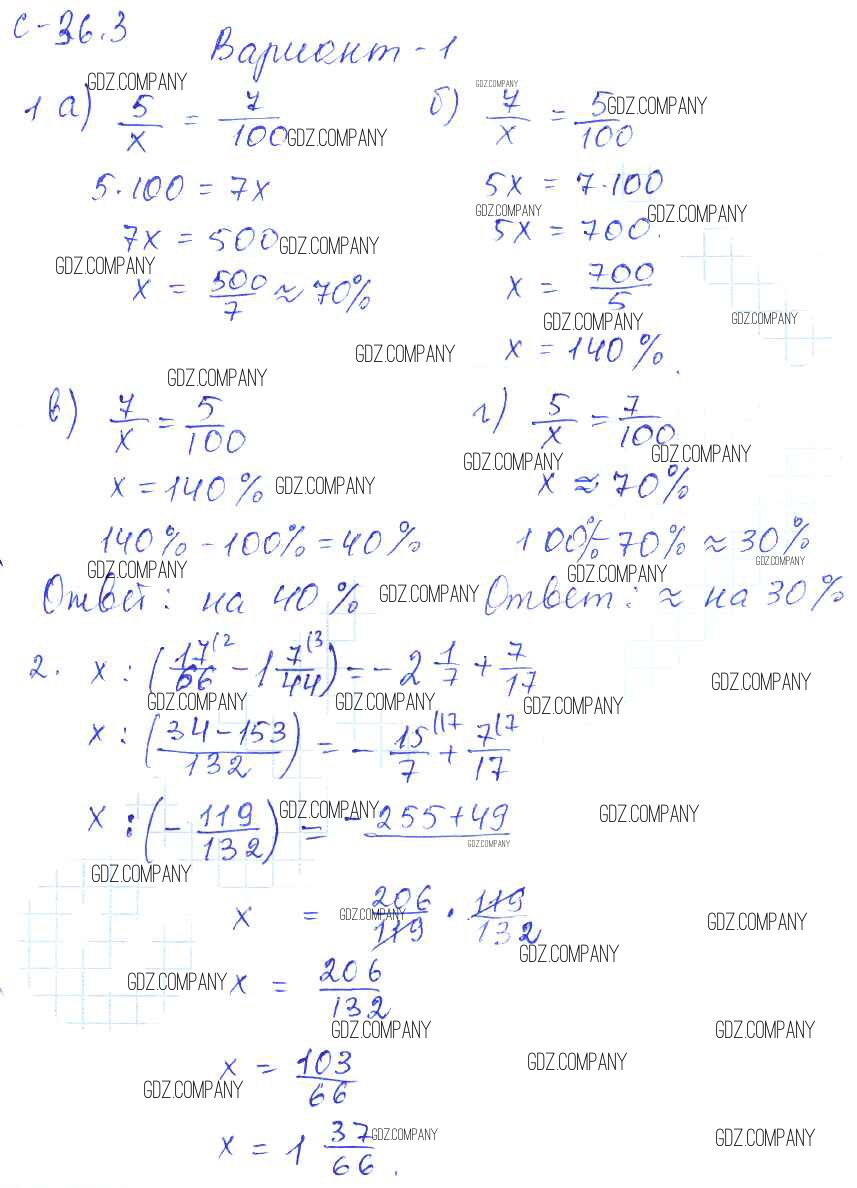 С-36.3
Вариант-1
GDZ.COMPANY
GDZ.COMPANY
1 а) 5/x = 7/100 GDZ.COMPANY
б) 7/x = 5/100 GDZ.COMPANY
5·100 = 7x
5x = 7·100
GDZ.COMPANY
GDZ.COMPANY
7x = 500 GDZ.COMPANY
5x = 700.
GDZ.COMPANY
x = 500/7 ≈ 70%
x = 700/5
GDZ.COMPANY
GDZ.COMPANY
GDZ.COMPANY
x = 140%.
GDZ.COMPANY
в) 7/x = 5/100
г) 5/x = 7/100
GDZ.COMPANY
GDZ.COMPANY
x = 140% GDZ.COMPANY
x ≈ 70%
140% - 100% = 40%
100% - 70% ≈ 30%
GDZ.COMPANY
GDZ.COMPANY
GDZ.COMPANY
Ответ: на 40% GDZ.COMPANY
Ответ: ≈ на 30%
2. x : (17(2/66 - 1 7(3/44) = -2 1/7 + 7/17
GDZ.COMPANY
GDZ.COMPANY
GDZ.COMPANY
GDZ.COMPANY
x : (34-153/132) = - 15(17/7 + 7(7/17
x : (- 119/132) = - 255+49
GDZ.COMPANY
GDZ.COMPANY
GDZ.COMPANY
GDZ.COMPANY
x = 206/119 · 119/132
GDZ.COMPANY
GDZ.COMPANY
GDZ.COMPANY
GDZ.COMPANY x = 206/132
GDZ.COMPANY
GDZ.COMPANY
x = 103/66
GDZ.COMPANY
GDZ.COMPANY
x = 1 37/66.
GDZ.COMPANY
GDZ.COMPANY